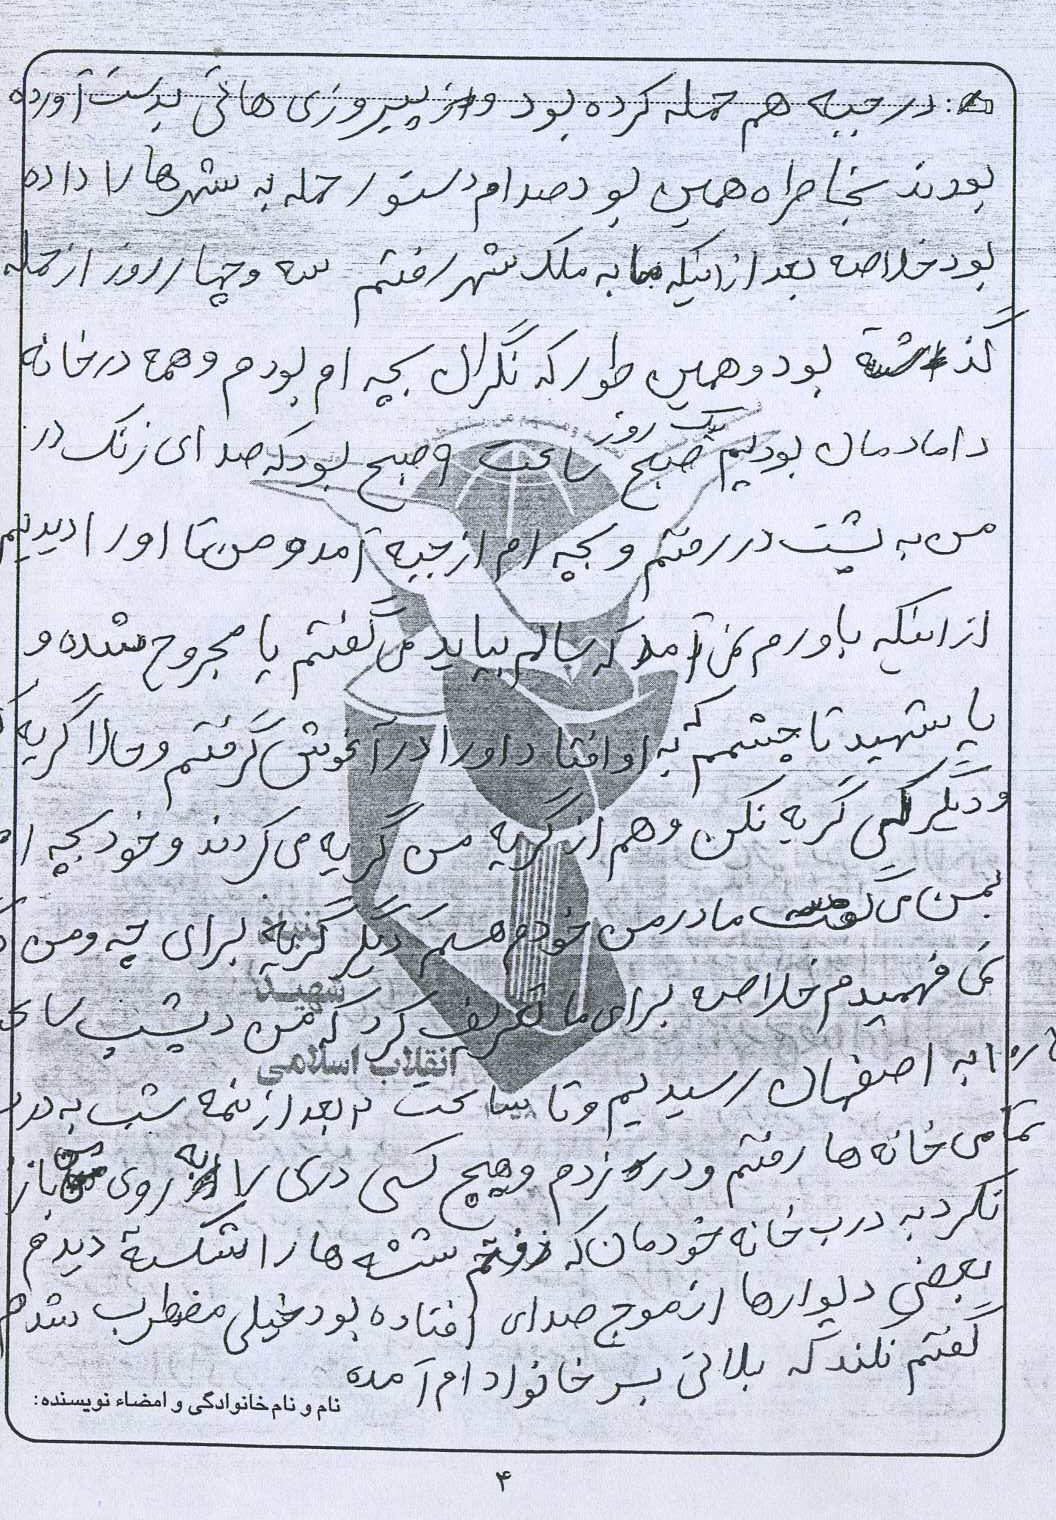 در جبهه هم حمله کرده بود و پیروزی هائی بدست آورده
بودند بخاطراه همین بود صدام دستور حمله به شهرها را داده
بود خلاصه بعد از اینکه ما به ملک شهر رفتم سه و چهار روز از حمله
گذشته بود و همین طور که نگران بچه ام بودم و همه در خانه
دامادمان بودیم یک روز صبح ساعت ۹ صبح بود که صدای زنگ در
من به پشت در رفتم و بچه ام از جبهه آمد و من تا او را دیدیم
از اینکه باورم نمی آمد که سالم بیاید می گفتم یا مجروح شده و
یا شهید تا چشمم به او افتاد او را در آغوش گرفتم و حالا گریه
و دیگر کی گریه نکن و هم از گریه من گریه می کردند و خود بچه ام
بمن می گفت مادر من خودم هستم دیگر گریه برای چه و من
نمی فهمیدم خلاصه برای ما تعریف کرد که من دیشب ساعت
۱۰ به اصفهان رسیدیم و تا ساعت ۲ بعد از نمه شب به درب
تمامی خانه ها رفتم و در زدم و هیچ کسی دری را به روی من باز
نکرد به درب خانه خودمان که رفتم شیشه ها را شکسته دیدم
بعضی دیوارها از موج صدای افتاده بود خیلی مضطرب شدم
گفتم نکند که بلائی بسر خانواد ام آمده
بنیاد
شهید
انقلاب اسلامی
نام و نام خانوادگی و امضاء نویسنده:
۴